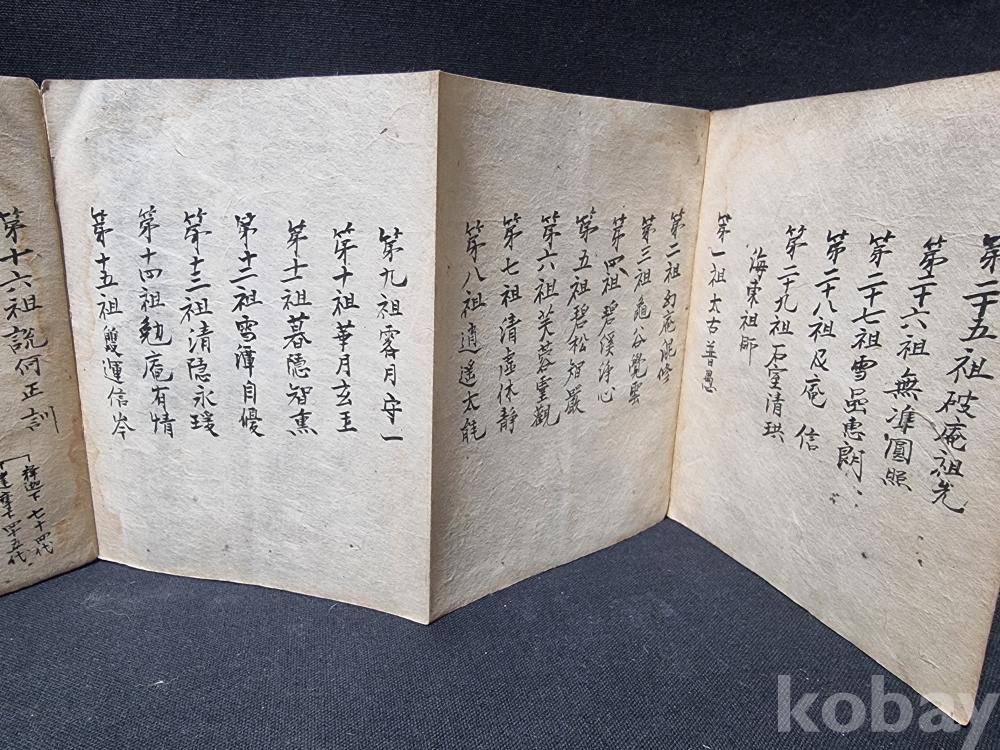 第二十五祖破庵祖先
第二十六祖無準圓照
第二十七祖雪嵒惠朗
第二十八祖及庵 信
第二十九祖石室清珙
海東祖師
第一祖太古普愚
第二祖幻庵混修
第三祖龜谷覺雲
第四祖碧溪淨心
第五祖碧松智嚴
第六祖芙蓉靈觀
第七祖清虛休靜
第八祖逍遙太能
第九祖霽月守一
第十祖華月玄玉
第十一祖暮隱智熏
第十二祖雪渾自優
第十三祖清隱永瑗
第十四祖勉庵有情
第十五祖雙運信岑
第十六祖說何正訓
釋迦下七十四代
達摩下四十五代
kobay